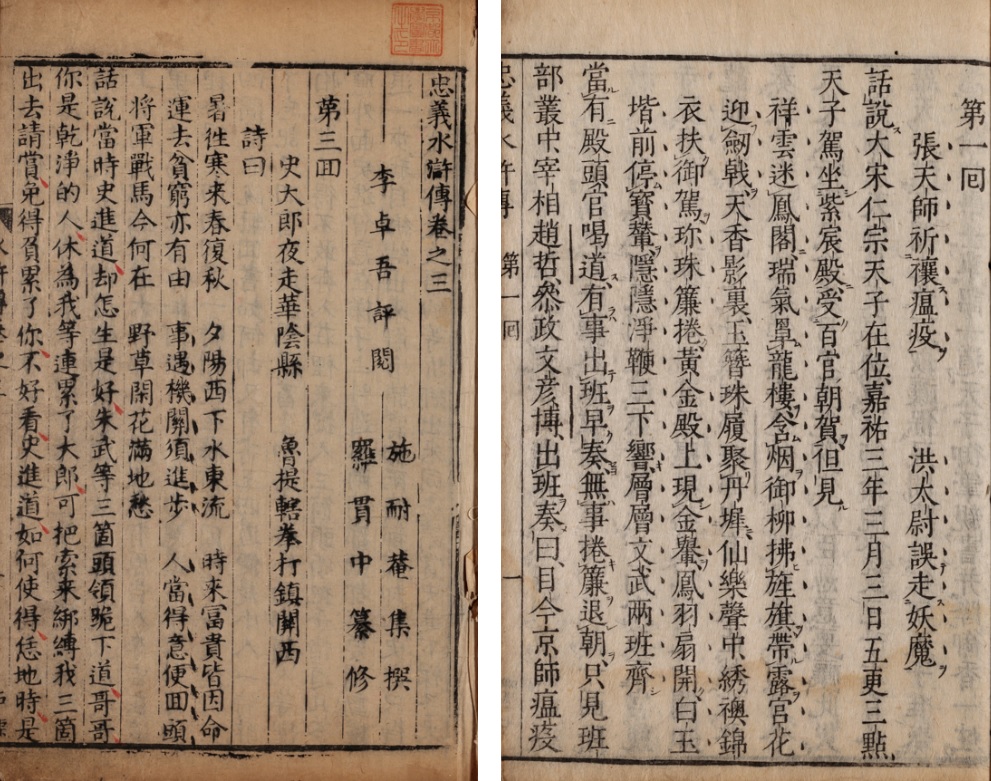 第一回
張天師祈禳瘟疫　洪太尉誤走妖魔
話說大宋仁宗天子在位嘉祐三年三月三日五更三點
天子駕坐紫宸殿受百官朝賀但見
祥雲迷鳳閣瑞氣罩龍樓含烟御柳拂旌旗帶露宮花
迎劒戟天香影裏玉簪珠履聚丹墀仙樂聲中綉襖錦
衣扶御駕珎珠簾捲黃金殿上現金轝鳳羽扇開白玉
堦前停寶輦隱隱淨鞭三下響層層文武兩班齊
當有殿頭官喝道有事出班早奏無事捲簾退朝只見班
部叢中宰相趙哲叅政文彥博出班奏曰目今京師瘟疫
忠義水滸傳　第一回　一
忠義水滸傳卷之三
李卓吾評閱
施耐菴集撰
羅貫中纂修
第三回
史大郎夜走華陰縣　魯提轄拳打鎮關西
詩曰
暑往寒來春復秋　夕陽西下水東流　時來富貴皆因命
運去貧窮亦有由　事遇機關須進步　人當得意便回頭
將軍戰馬今何在　野草閑花滿地愁
話說當時史進道却怎生是好朱武等三箇頭領跪下道哥哥
你是乾淨的人休為我等連累了大郎可把索來綁縛我三箇
出去請賞免得負累了你不好看史進道如何使得恁地時是